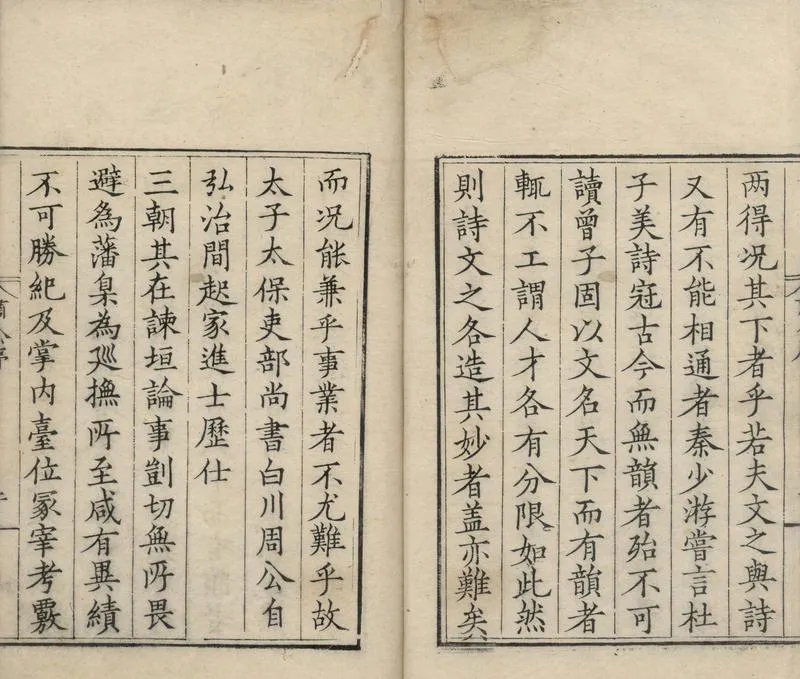 两得况其下者乎若夫文之與詩
又有不能相通者秦少游嘗言杜
子美詩冠古今而無韻者殆不可
讀曾子固以文名天下而有韻者
輒不工謂人才各有分限如此然
則詩文之各造其妙者盖亦難矣
而况能兼乎事業者不尤難乎故
太子太保吏部尚書白川周公自
弘治間起家進士歷仕
三朝其在諫垣論事剴切無所畏
避為藩臬為廵撫所至咸有異績
不可勝紀及掌内臺位冢宰考覈